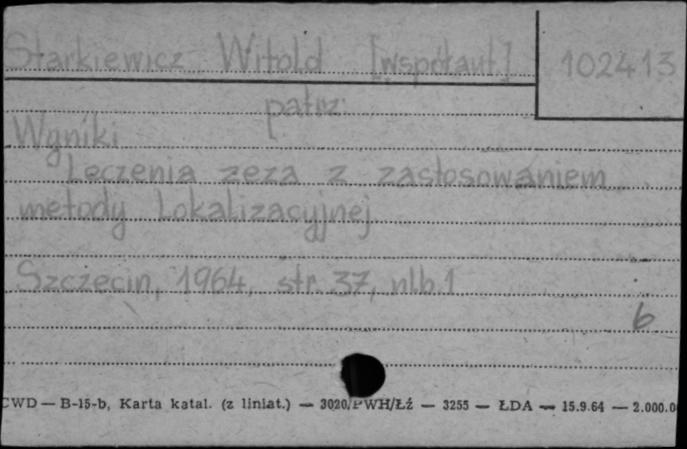 Starkiewicz Witold [współaut.] 102413
patrz:
Wyniki
Leczenia zeza z zastosowaniem
metody Lokalizacyjnej.
Szczecin, 1964, str. 37, nlb. 1
6
CWD — B-15-b, Karta katal. (z liniat.) — 3020/PWH/Łź — 3255 — ŁDA — 15.9.64 — 2.000.0